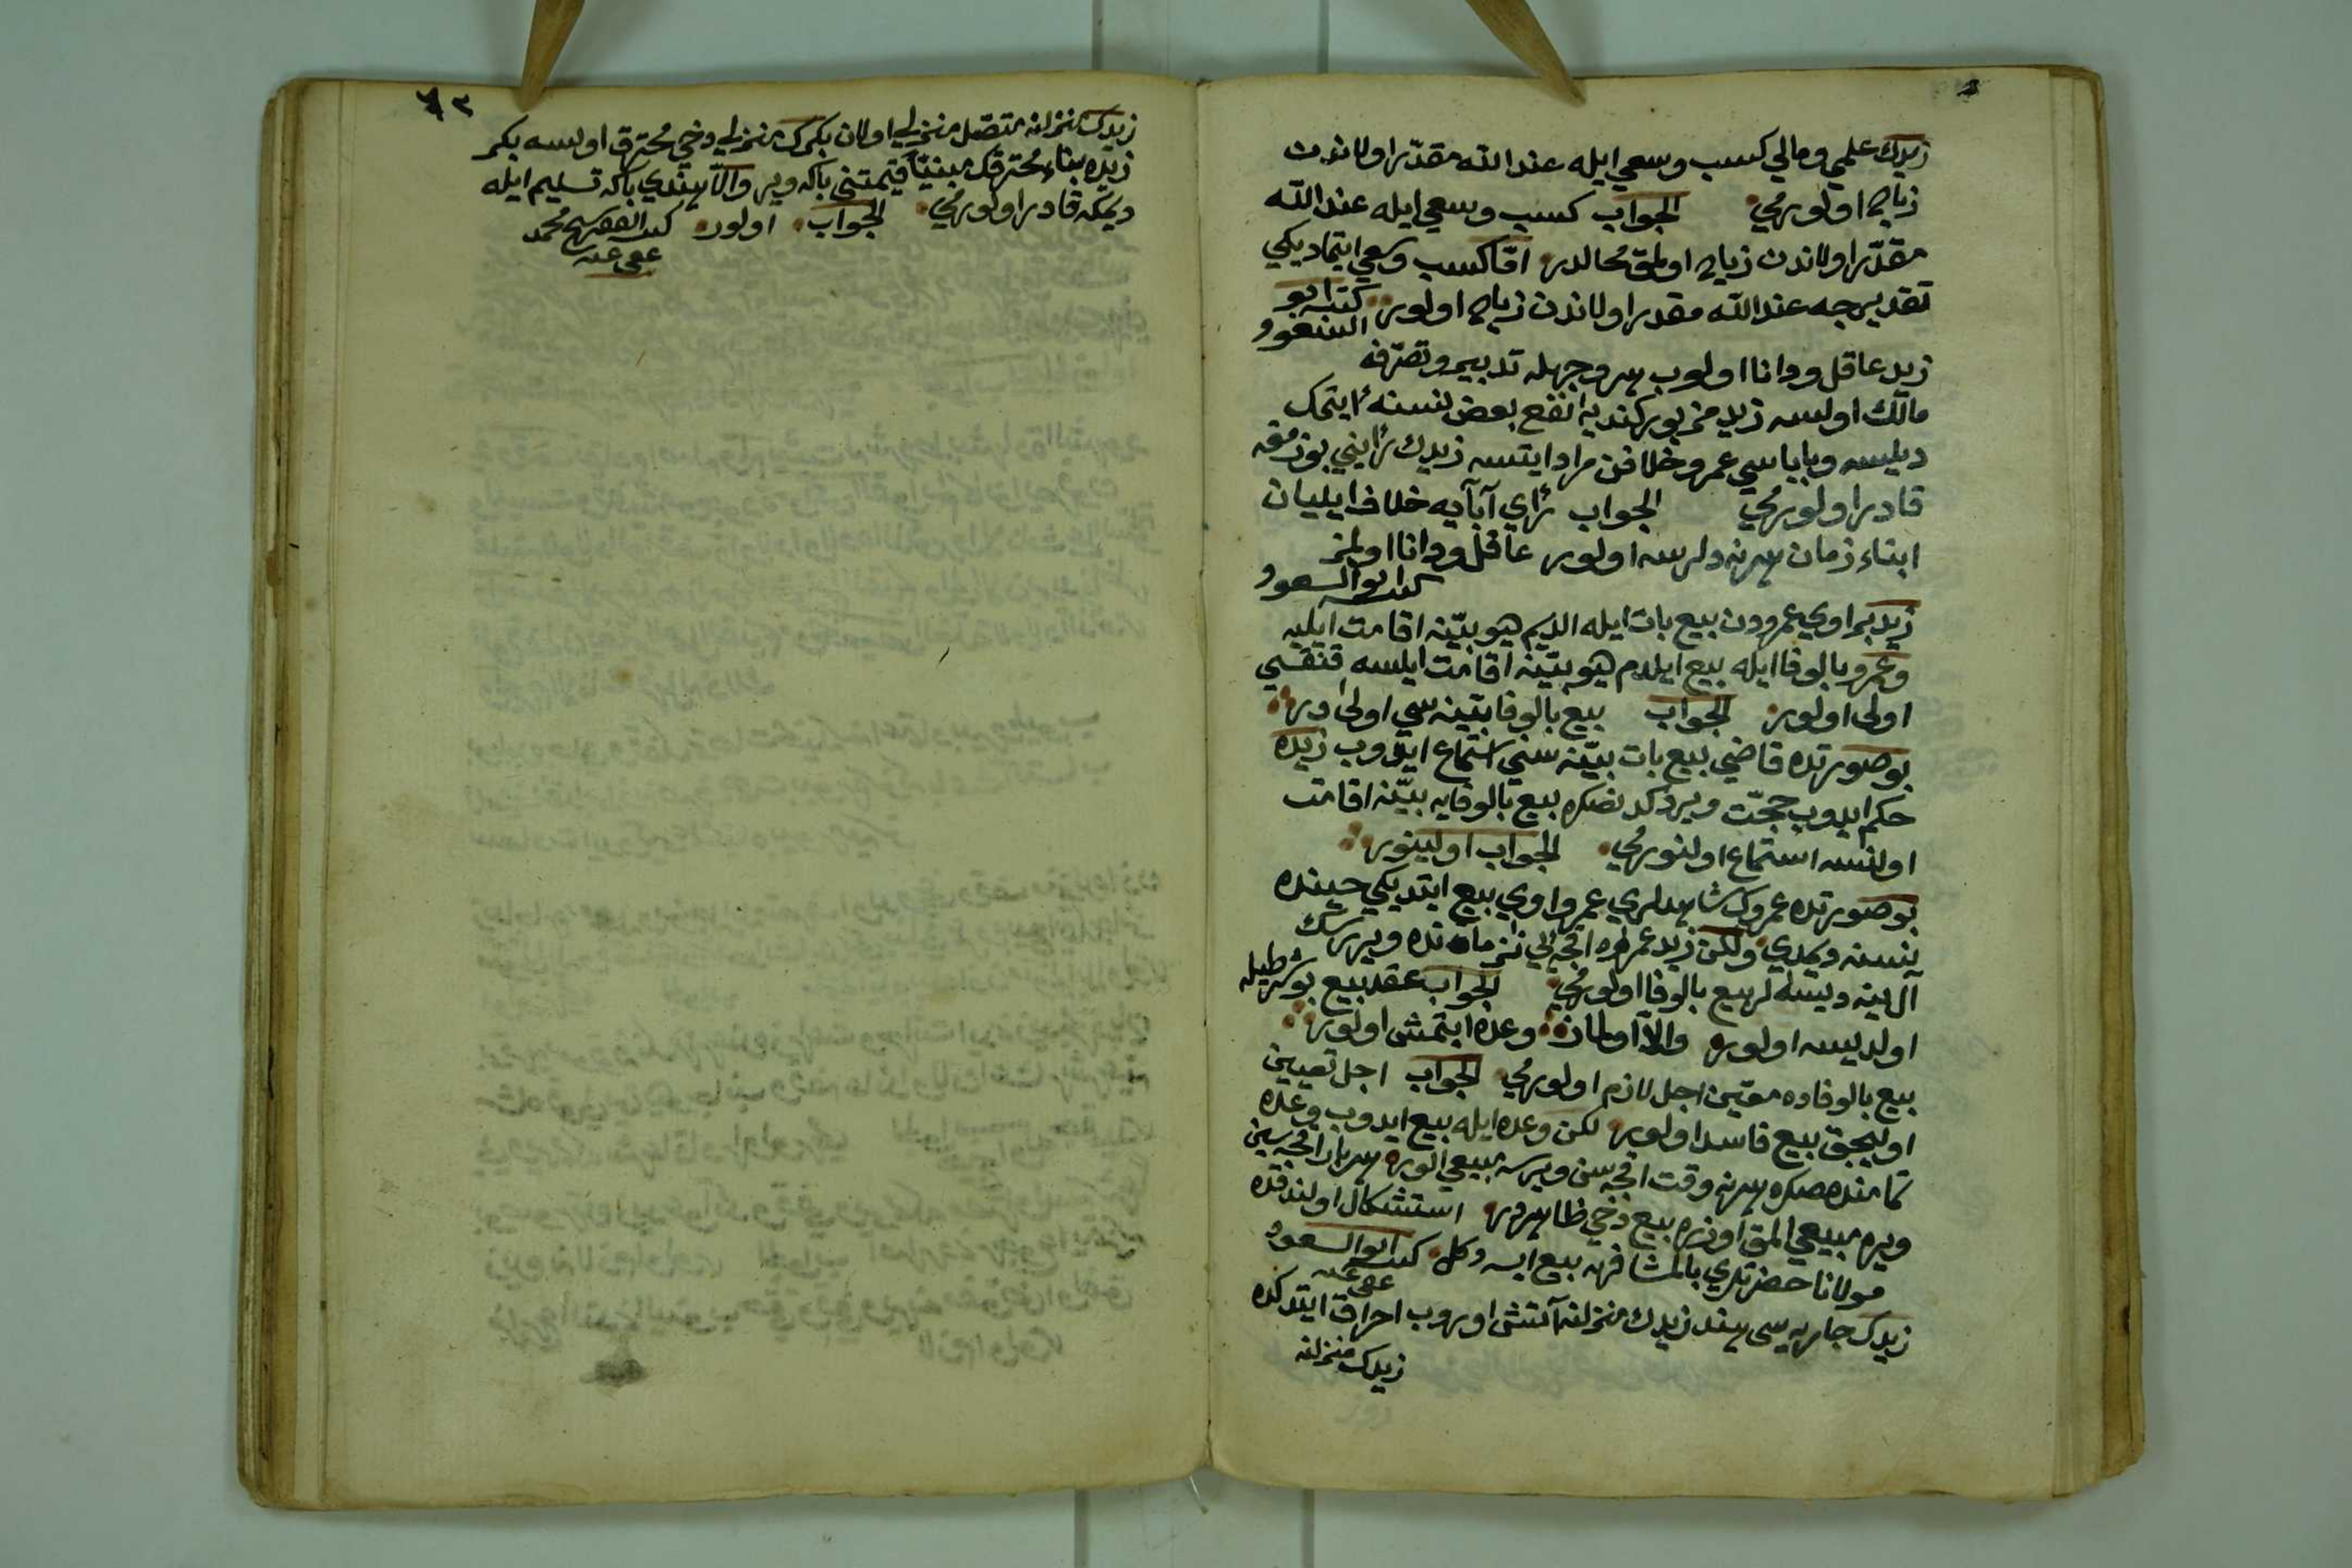 زيدك علمي ومالي كسب وسعي ايله عند الله مقدّر اولاندن
زياده اولورمي الجواب كسب وسعي ايله عند الله
مقدّر اولاندن زياده اولمق محالدر امّا كسب وسعي ايتماديكي
تقديرجه عند الله مقدر اولاندن زياده اولور كتبه ابو
السعود
زيد عاقل ودانا اولوب هر وجهله تدبير وتصرّفه
مالك اولسه زيد مزبور كنديه انفع بعض نسنه ايتمك
ديلسه وباباسي عمرو خلافن مراد ايتسه زيدك رأيني بوزمغه
قادر اولورمي الجواب رأي آبآيه خلاف ايليان
ابناء زمان هر نه دلرسه اولور عاقل ودانا اولمز
كتبه ابو السعود
زيد بر اوي عمرودن بيع بات ايله الديم هيو بيّنه اقامت ايليه
وعمرو بالوفا ايله بيع ايلدم هيو بيّنه اقامت ايلسه قنقسي
اولى اولور الجواب بيع بالوفا بيّنه سي اولى در
بو صورتده قاضي بيع بات بيّنه سني استماع ايدوب زيده
حكم ايدوب حجّت ويردكدنصكره بيع بالوفايه بيّنه اقامت
اولنسه استماع اولنورمي الجواب اولينور
بو صورتده عمروك شاهدلري عمرو اوي بيع ايتديكي حينده
نسنه ديمدي ولكن زيد عمروه اقچه لي نه زمانده ويررسك
آل هينه ديسه لر بيع بالوفا اولورمي الجواب عقد بيع بو شرطيله
اولديسه اولور والّا اولماز وعده ايتمش اولور
بيع بالوفاده معيّن اجل لازم اولورمي الجواب اجل تعيين
اوليجق بيع فاسد اولور لكن وعده ايله بيع ايدوب وعده
تمامنده صكره هر نه وقت اقچه سن ويرسه مبيعي الور هر بار اقچه سين
ويره مبيعي المق اوزره بيع دخي ظاهردر استشكال اولندقده
مولانا حضرتلري بالمشافهه بيع ايسه دكل كتبه ابو السعود
عفى عنه
زيدك جاريه سي هند زيدك منزلنه آتش اوروب احراق ايتدكده
زيدك منزلنه
زيدك منزلنه متصل منزلي اولان بكرك منزلي دخي محترق اولسه بكر
زيده بناء محترقك مبنيّا قيمتني باكه وير والّا هندي باكه تسليم ايله
ديمكه قادر اولورمي الجواب اولور كتبه الفقير شيخ محمد
عفى عنه